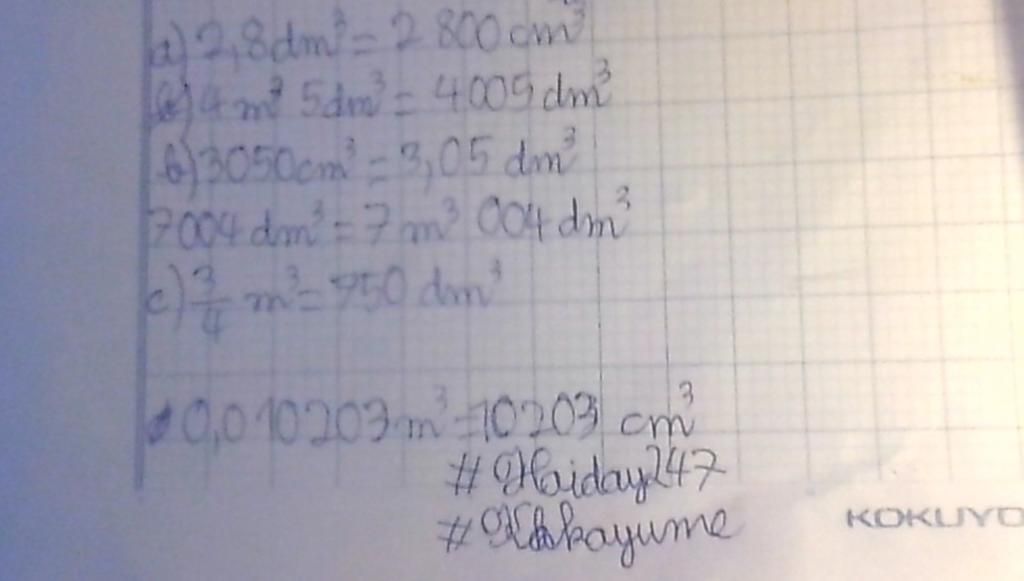 a) 2,8dm³ = 2 800 cm³
4 m³ 5dm³ = 4005 dm³
b) 3050cm³ = 3,05 dm³
7004 dm³ = 7 m³ 004 dm³
c) 3/4 m³ = 750 dm³
0,010203 m³ = 10203 cm³
#Haiday247
KOKUYO